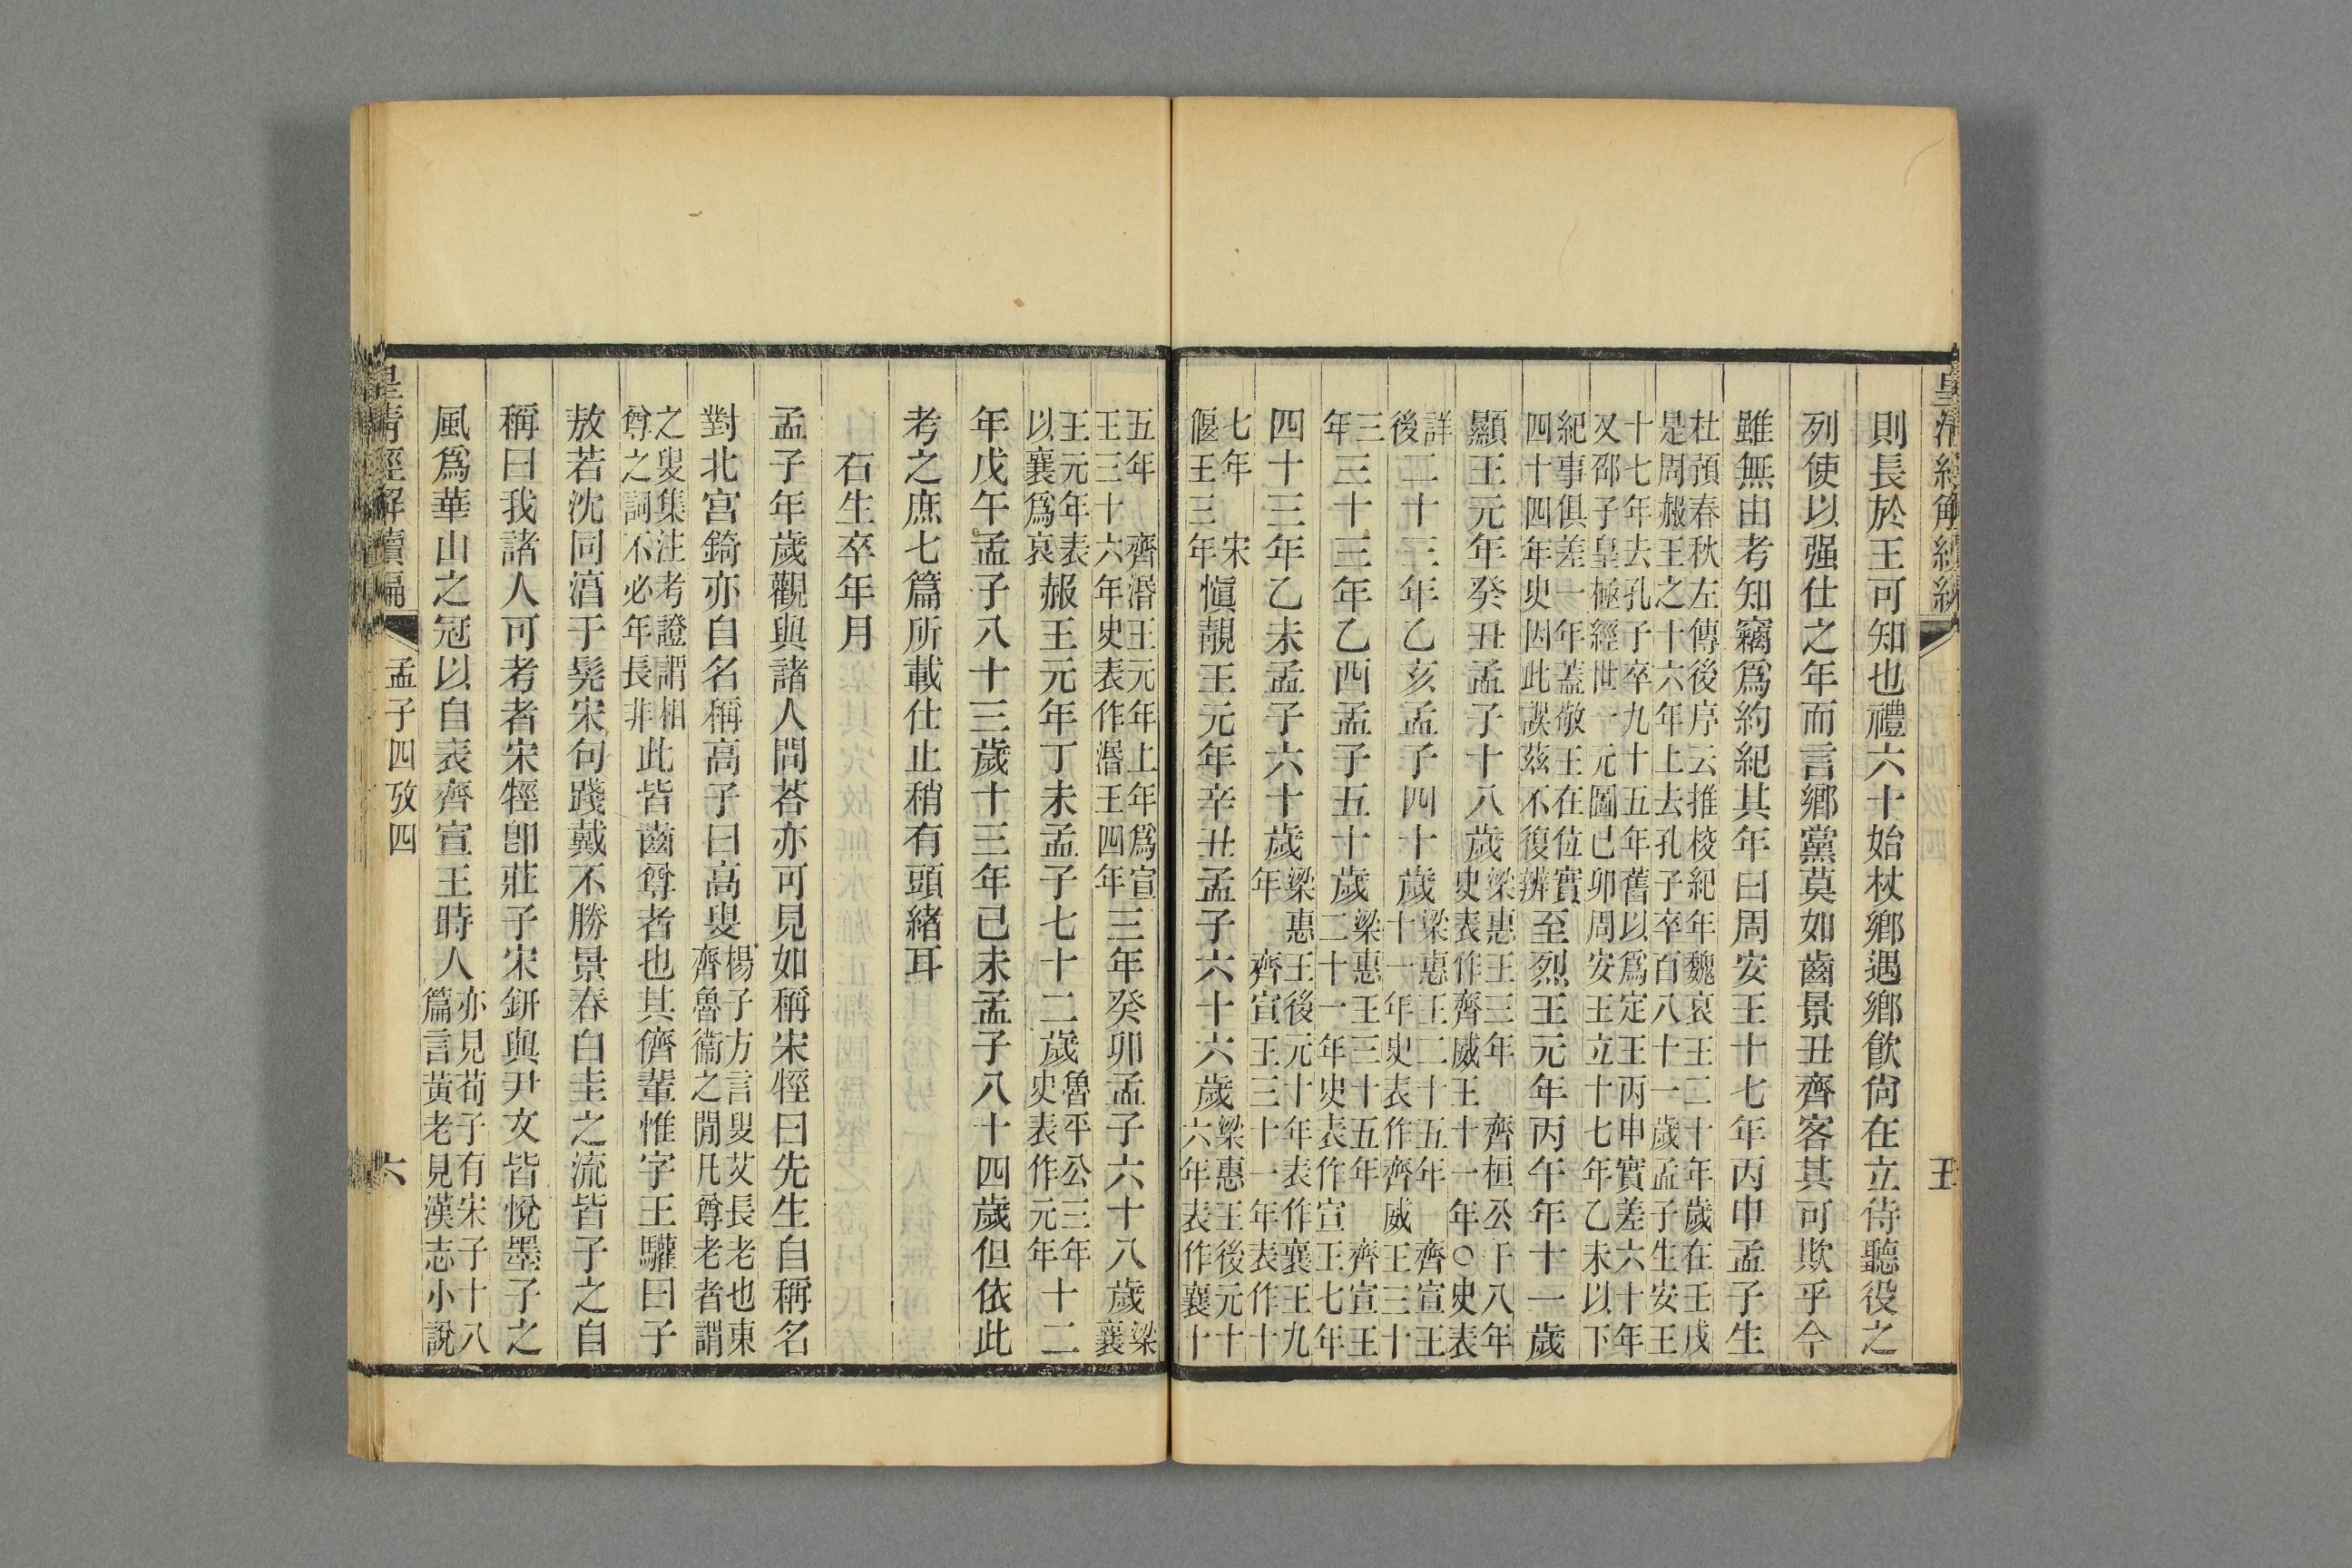 皇清經解續編
五
則長於王可知也禮六十始杖鄉遇鄉飮尙在立待聽役之
列使以强仕之年而言鄉黨莫如齒景丑齊客其可欺乎今
雖無由考知竊爲約紀其年曰周安王十七年丙申孟子生
杜預春秋左傳後序云推校紀年魏哀王二十年歲在壬戌
是周赧王之十六年上去孔子卒百八十一歲孟子生安王
十七年去孔子卒九十五年舊以爲定王丙申實差六十年
又邵子皇極經世一元圖已卯周安王立十七年乙未以下
紀事俱差一年蓋敬王在位實
四十四年史因此誤茲不復辨
至烈王元年丙午年十一歲
顯王元年癸丑孟子十八歲
梁惠王三年 齊桓公十八年
史表作齊威王十一年○史表

詳
後
二十三年乙亥孟子四十歲
梁惠王二十五年 齊宣王
十一年史表作齊威王三十
三
年
三十三年乙酉孟子五十歲
梁惠王三十五年 齊宣王
二十一年史表作宣王七年
四十三年乙未孟子六十歲
梁惠王後元十年表作襄王九
年 齊宣王三十一年表作十
七年 宋
偃王三年
愼靚王元年辛丑孟子六十六歲
梁惠王後元十
六年表作襄十
五年 齊湣王元年上年爲宣
王三十六年史表作湣王四年
三年癸卯孟子六十八歲
梁
襄
王元年表
以襄爲哀
赧王元年丁未孟子七十二歲
魯平公三年
史表作元年
十二
年戊午孟子八十三歲十三年已未孟子八十四歲但依此
考之庶七篇所載仕止稍有頭緒耳
右生卒年月
孟子年歲觀與諸人問荅亦可見如稱宋牼曰先生自稱名
對北宮錡亦自名稱高子曰高叟
楊子方言叟艾長老也東
齊魯衞之閒凡尊老者謂
之叟集注考證謂相
尊之詞不必年長非
此皆齒尊者也其儕輩惟字王驩曰子
敖若沈同湻于髠宋句踐戴不勝景春白圭之流皆子之自
稱曰我諸人可考者宋牼卽莊子宋鈃與尹文皆悅墨子之
風爲華山之冠以自表齊宣王時人
亦見荀子有宋子十八
篇言黃老見漢志小說
皇清經解續編
孟子四攷四
六